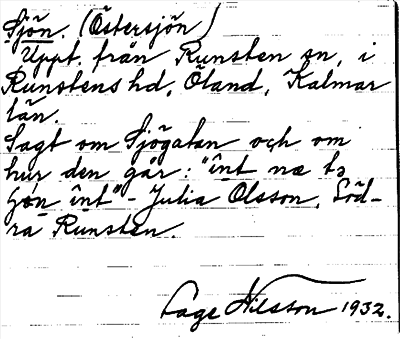 Sjön. (Östersjön)
Uppt. från Runsten sn, i
Runstens hd, Öland, Kalmar
län.
Sagt om Sjögatan och om
hur den går: "înt næ
înt" - Julia Olsson, Söd-
ra Runsten.
Lage Nilsson 1932.